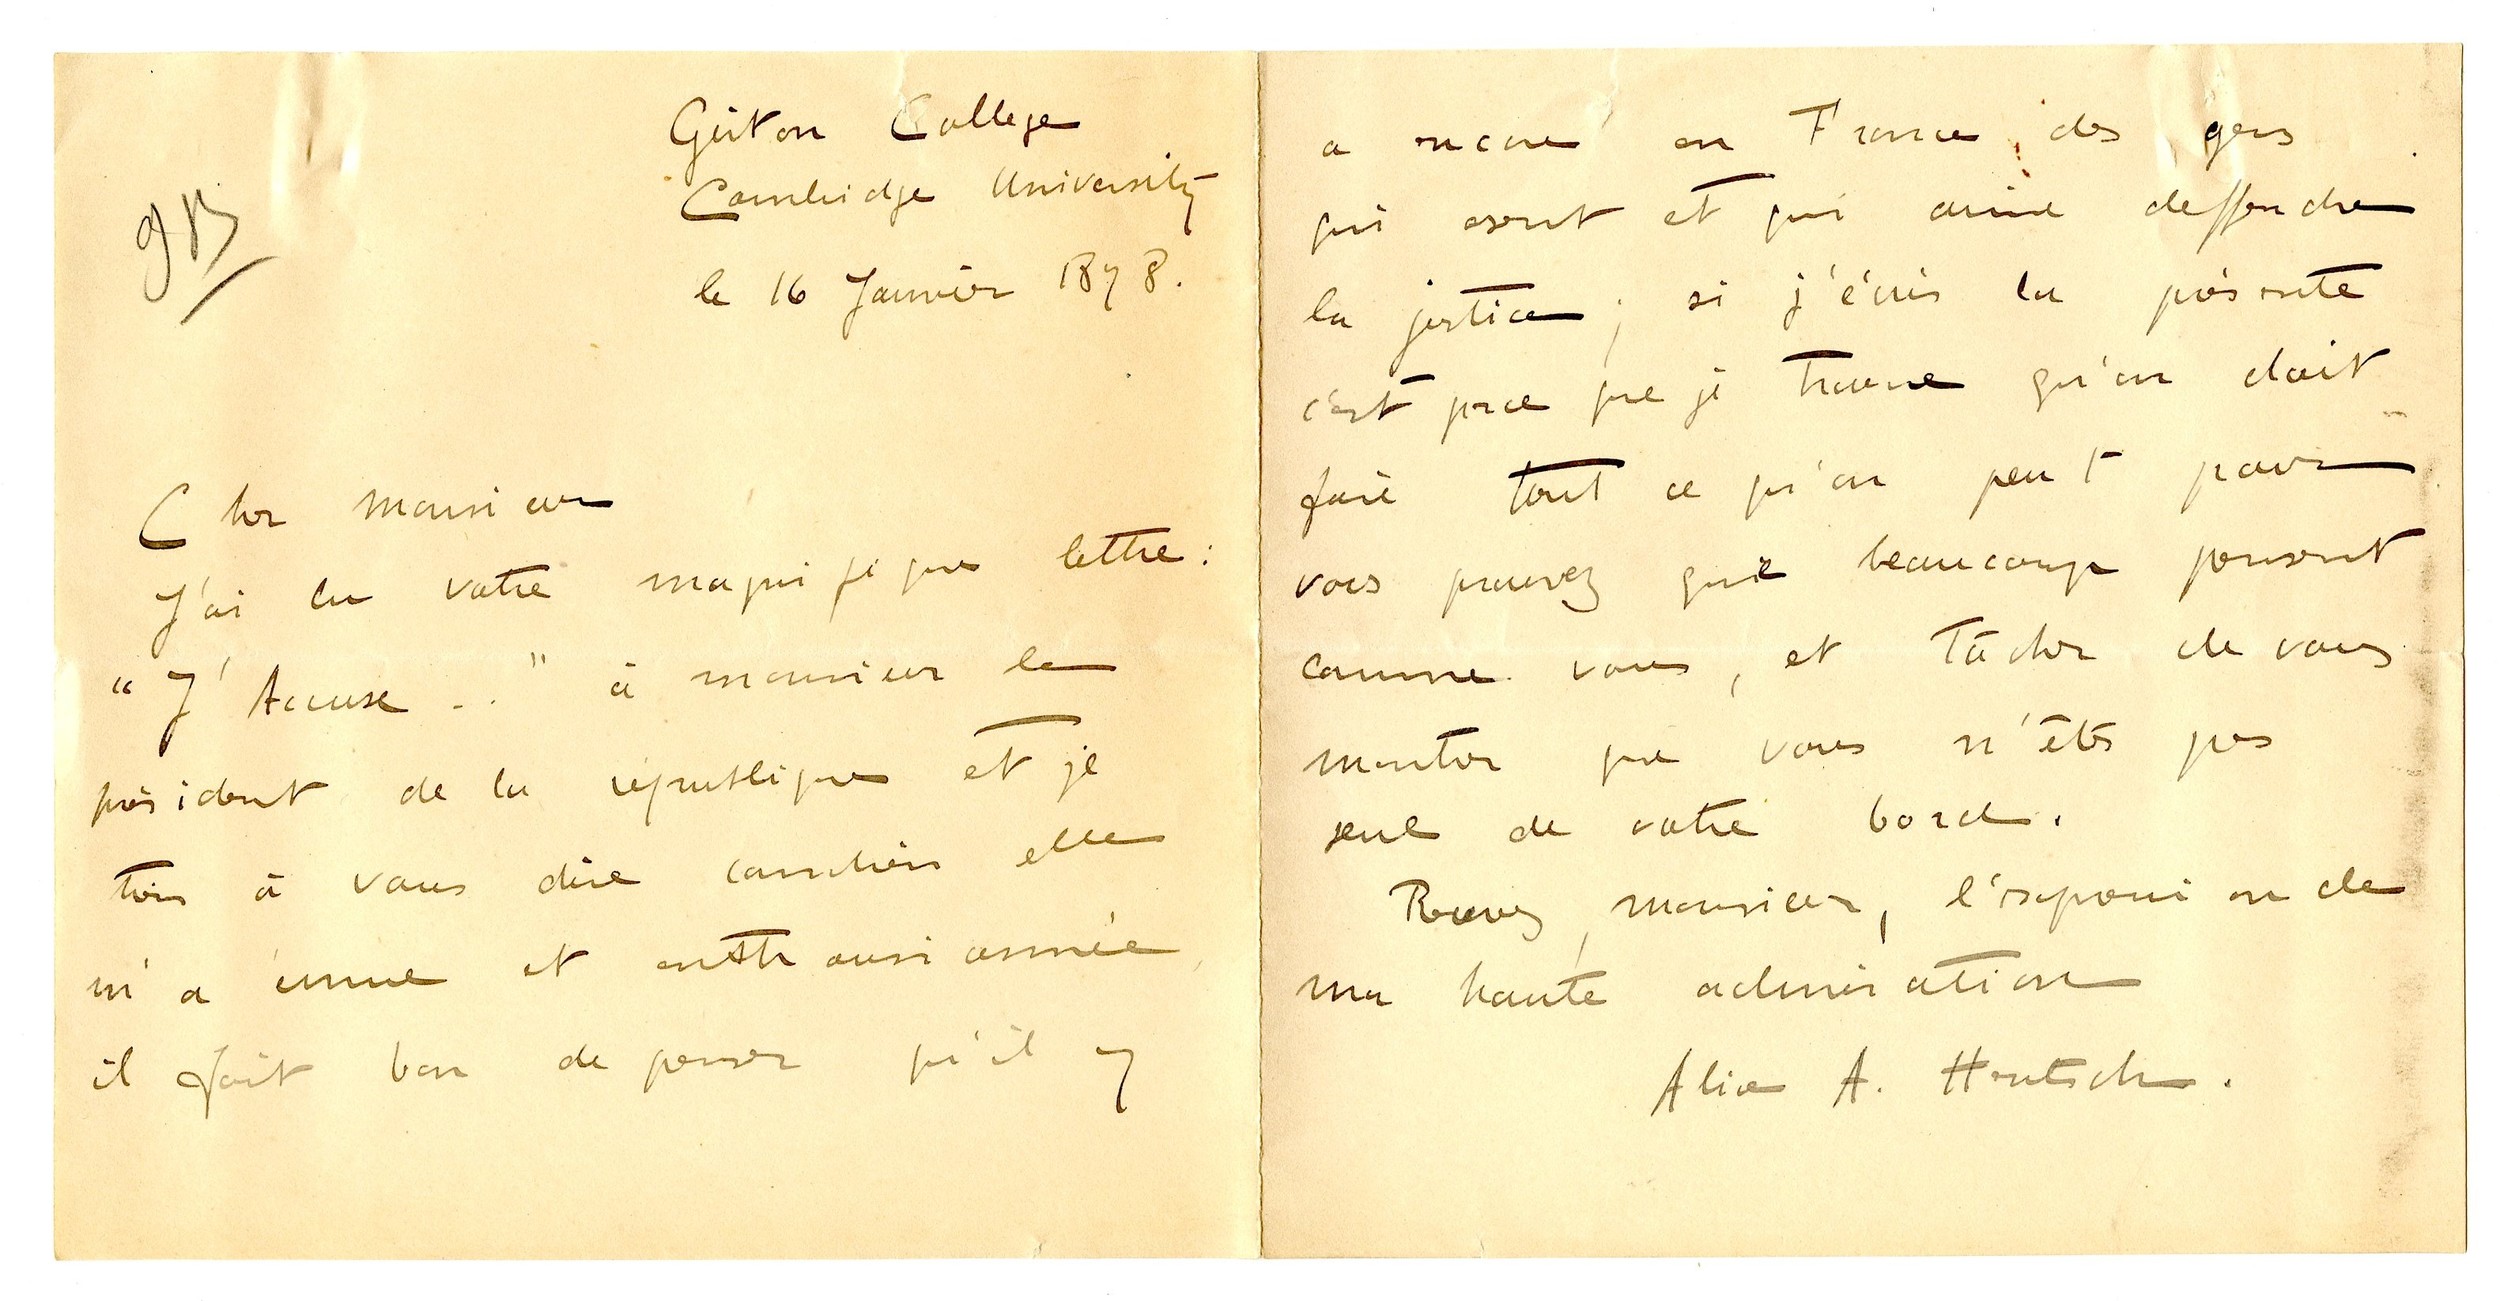 Girton College
Cambridge University
le 16 Janvier 1898.
Cher monsieur
J'ai lu votre magnifique lettre :
"J'Accuse..." à monsieur le
président de la république et je
tiens à vous dire combien elle
m'a émue et enthousiasmée,
il fait bon de penser qu'il y
a encore en France des gens
qui osent et qui aime deffendre
la justice ; si j'écris la présente
c'est parce que je trouve qu'on doit
faire tout ce qu'on peut pour
vous prouvez que beaucoup pensent
comme vous, et tâcher de vous
montrer que vous n'êtes pas
seul de votre bord.
Recevez, monsieur, l'expression de
ma haute admiration
Alice A. Hentsch.